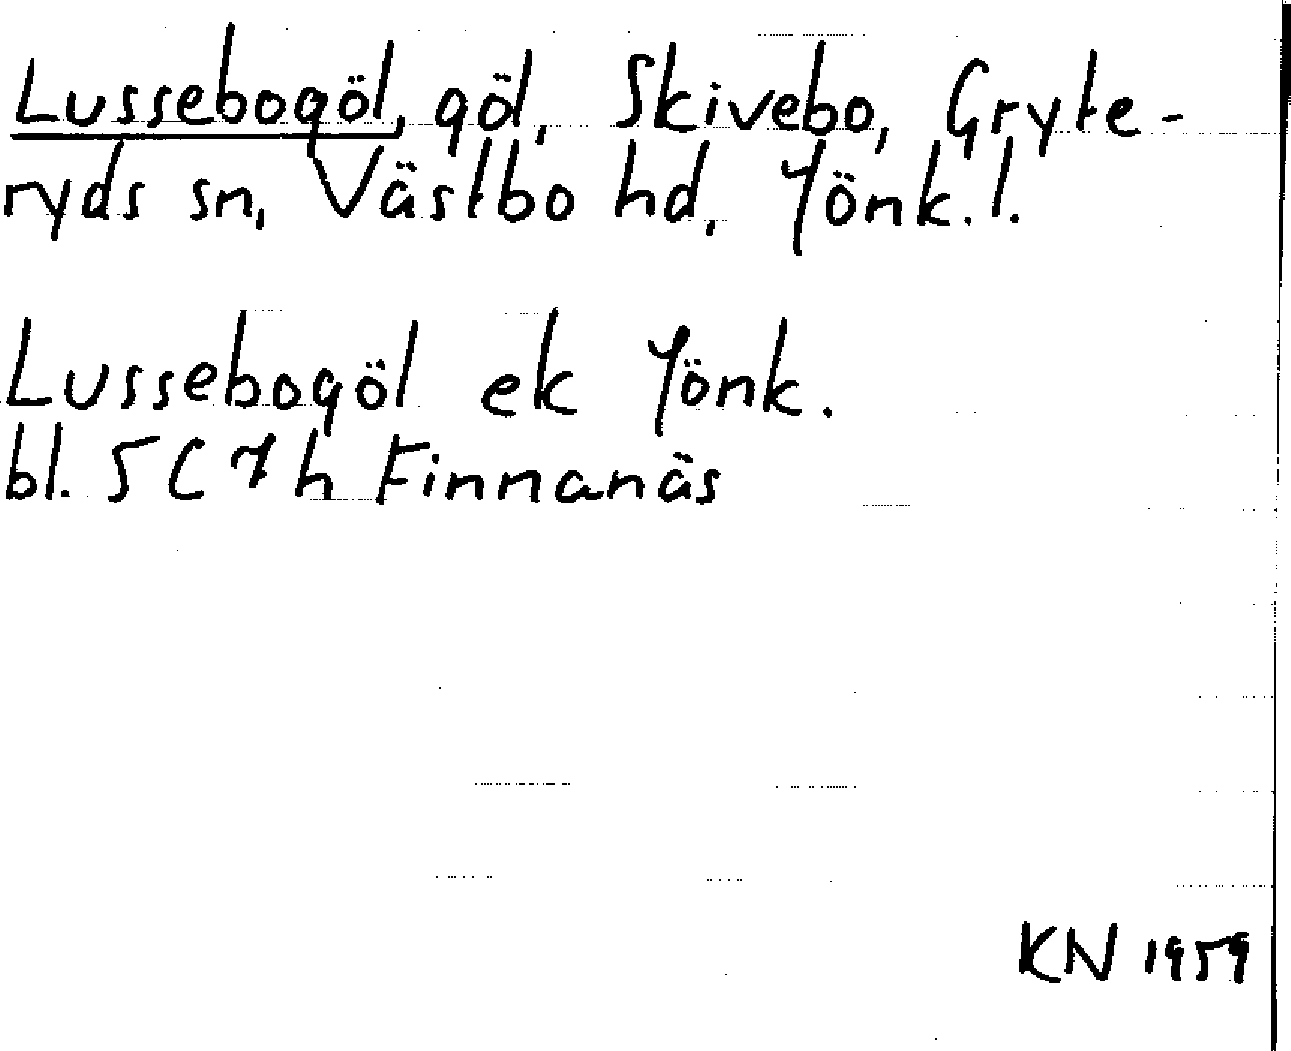 Lussebogöl, göl, Skivebo, Gryte-
ryds sn, Västbo hd, Jönk. l.
Lussebogöl ek Jönk.
bl. 5C7h Finnanäs
KN 1959